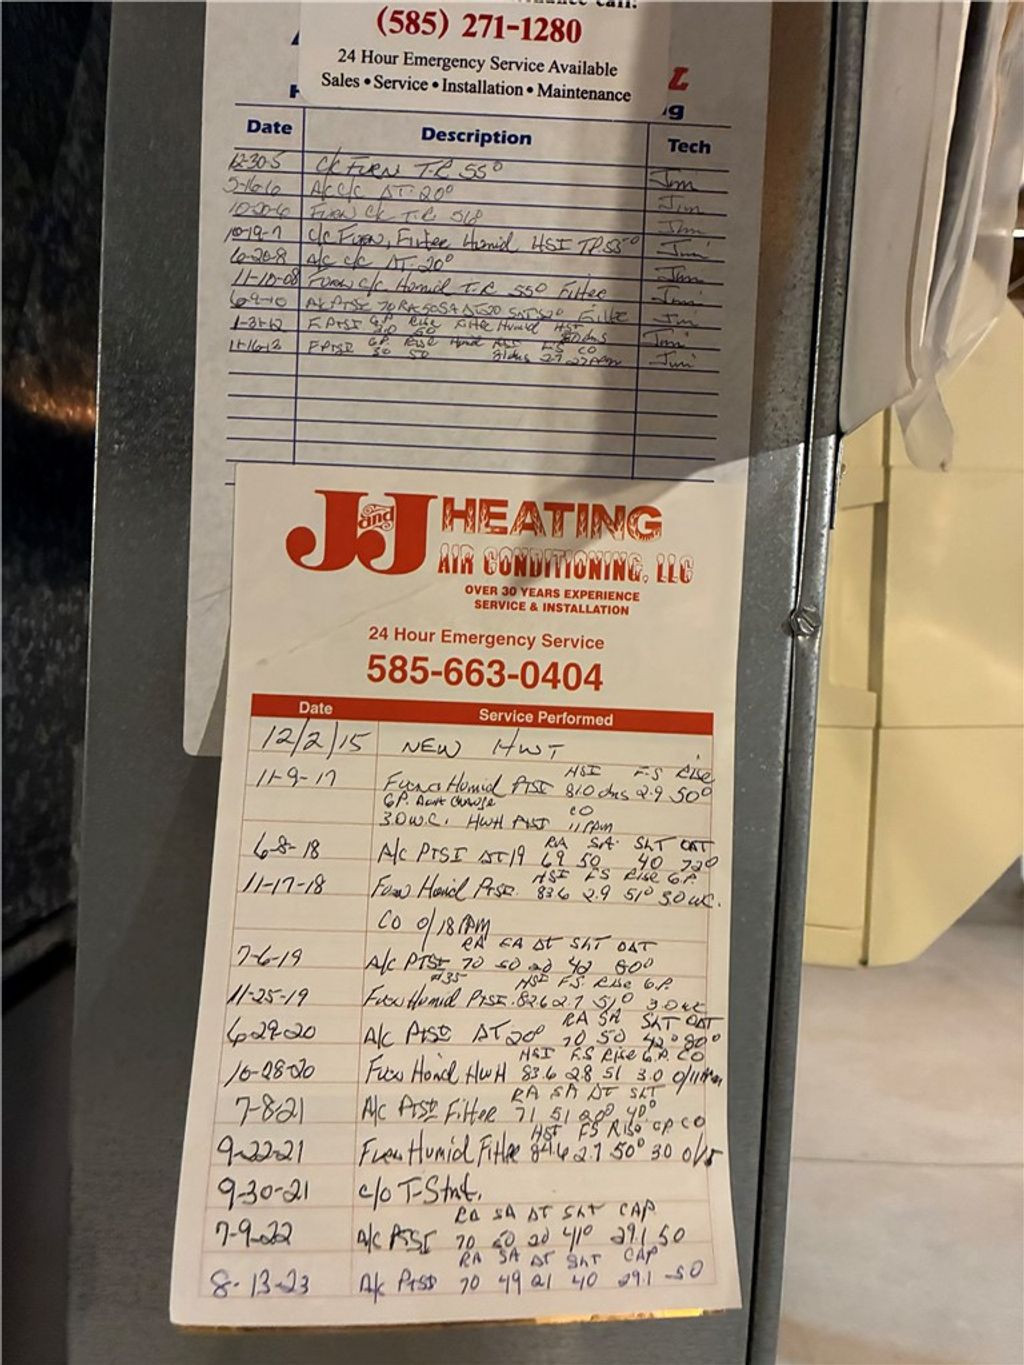 (585) 271-1280
24 Hour Emergency Service Available
Sales • Service • Installation • Maintenance
Date Description Tech
12-30-5 C/C FURN T.R 55° Jim
5-16-6 A/C C/C ΔT 20° Jim
10-20-6 Furn C/C T.R Jim
10-19-7 C/C Furn, Filter Humid HSI T.R 55° Jim
6-20-8 A/C C/C ΔT 20° Jim
11-10-08 Furn C/C Humid T.R 55° Filter Jim
6-9-10 A/C PTSI 70RA 50SA ΔT20 Filter Jim
G.P. Rise Filter Humid HSI
1-31-12 F.PTSI 3.0 50 Jim
G.P. Rise Humid HSI F.S CO
11-16-12 F PTSI 3.0 50 2.7 27PPM Jim
J and J HEATING
AIR CONDITIONING, LLC
OVER 30 YEARS EXPERIENCE
SERVICE & INSTALLATION
24 Hour Emergency Service
585-663-0404
Date Service Performed
12/2/15 NEW HWT
HSI F.S Rise
11-9-17 Furn Humid PTSI 81.0 ohms 2.9 50°
G.P. CO
3.0 W.C. HWH PTSI 11 PPM
RA SA SLT OAT
6-8-18 A/C PTSI ΔT 19 69 50 40 72°
HSI FS Rise G.P.
11-17-18 Furn Humid PTSI 83.6 2.9 51° 3.0 WC.
CO 0/18 PPM
RA SA ΔT SLT OAT
7-6-19 A/C PTSI 70 50 20 42 80°
#35 HSI F.S. Rise G.P.
11-25-19 Furn Humid PTSI 82.6 2.7 51° 3.0 WC
RA SA SLT OAT
6-29-20 A/C PTSI ΔT 20° 70 50 42° 80°
HSI F.S Rise G.P. CO
10-28-20 Furn Humid HWH 83.6 2.8 51 3.0 0/11 PPM
RA SA ΔT SLT
7-8-21 A/C PTSI Filter 71 51 20° 40°
HSI FS Rise GP CO
9-22-21 Furn Humid Filter 84.6 2.7 50° 30 0/15
9-30-21 C/O T-Stat.
RA SA ΔT SLT CAP
7-9-22 A/C PTSI 70 50 20 41° 29.1 50
RA SA ΔT SLT CAP
8-13-23 A/C PTSI 70 49 21 40 29.1 -50